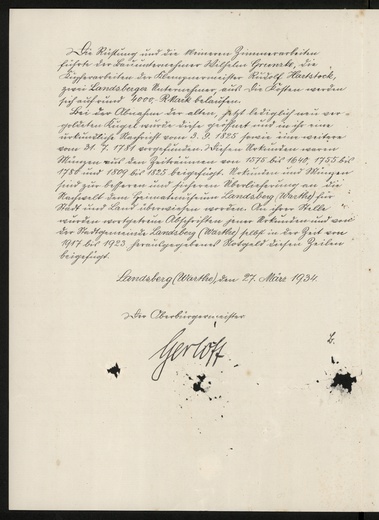 Die Rüstung und die kleineren Zimmerarbeiten
führte der Bauunternehmer Wilhelm Gronske, die
Kupferarbeiten der Klempnermeister Rudolf Hartstock,
zwei Landsberger Unternehmer, aus. Die Kosten werden
sich auf rund 4000.- RMark belaufen.
Bei der Abnahme der alten, jetzt lediglich neu ver-
goldeten Kugel wurde diese geöffnet und in ihr eine
urkundliche Nachricht vom 3. 9. 1825 sowie eine weitere
vom 31. 7. 1781 vorgefunden. Diesen Urkunden waren
Münzen aus den Zeiträumen von 1575 bis 1640, 1755 bis
1780 und 1809 bis 1825 beigefügt. Urkunden und Münzen
sind zur besseren und sicheren Überlieferung an die
Nachwelt dem Heimatmuseum Landsberg (Warthe) für
Stadt und Land überwiesen worden. An ihrer Stelle
wurden wortgetreue Abschriften jener Urkunden und von
der Stadtgemeinde Landsberg (Warthe) selbst in der Zeit von
1917 bis 1923 herausgegebenes Notgeld diesen Zeilen
beigefügt.
Landsberg (Warthe), den 27. März 1934.
Der Oberbürgermeister
Gerloff
L.